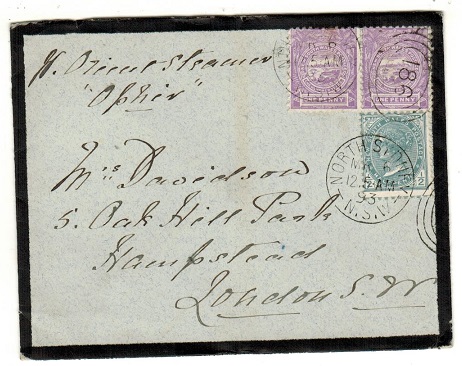 Orient Steamer
"Ophir"
Mrs Davidson
5. Oak Hill Park
Hampstead
London S. W
ONE PENNY
ONE PENNY
186
½
NORTH SYDNEY
93
N.S.W